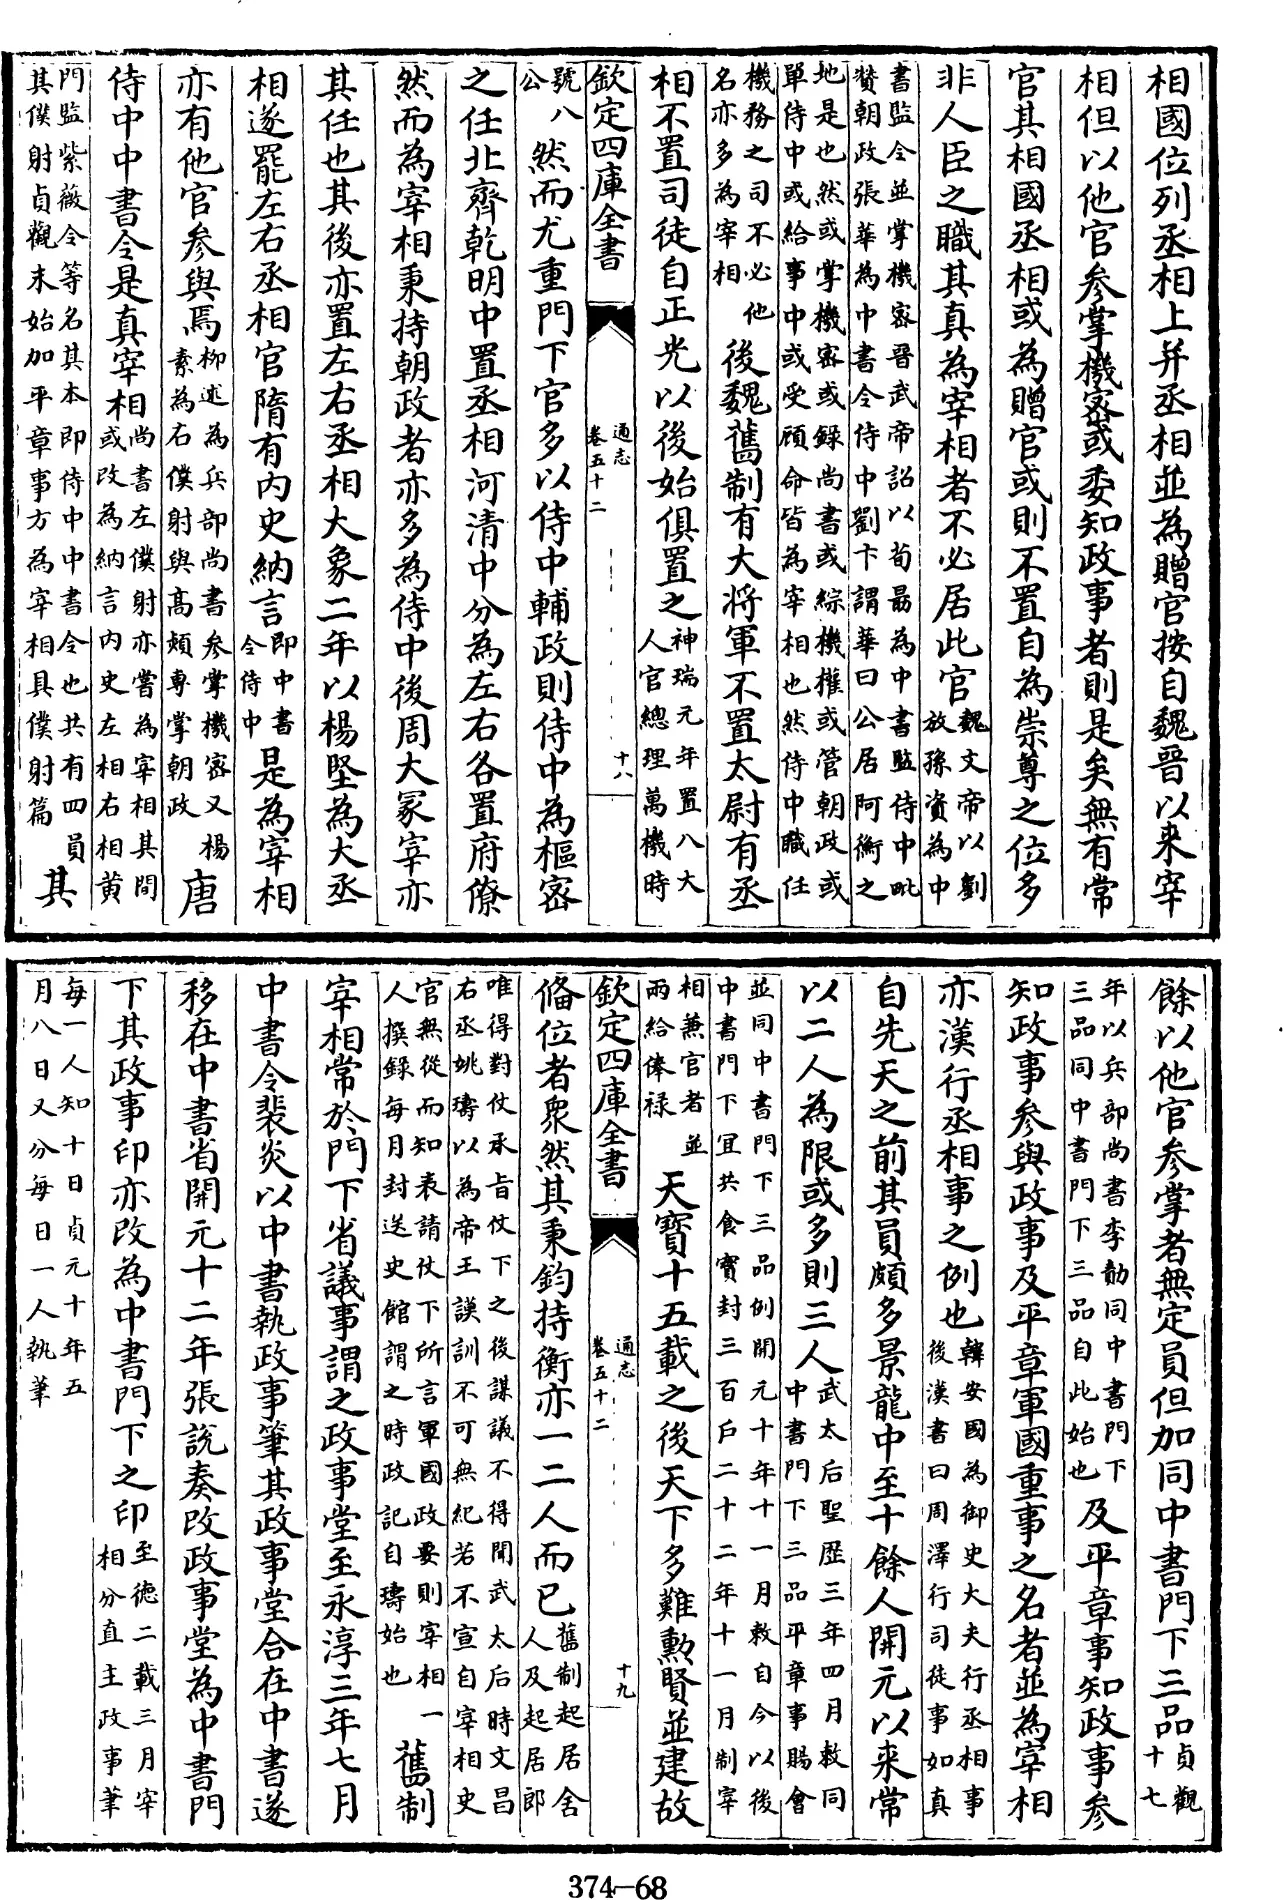 相國位列丞相上并丞相並為贈官按自魏晉以來宰
相但以他官參掌機密或委知政事者則是矣無有常
官其相國丞相或為贈官或則不置自為崇尊之位多
非人臣之職其真為宰相者不必居此官魏文帝以劉放孫資為中
書監令並掌機密晉武帝詔以荀勗為中書監侍中毗
贊朝政張華為中書令侍中劉卞謂華曰公居阿衡之
地是也然或掌機密或錄尚書或綜機權或管朝政或
單侍中或給事中或受顧命皆為宰相也然侍中職任
機務之司不必他名亦多為宰相後魏舊制有大將軍不置太尉有丞
相不置司徒自正光以後始俱置之神瑞元年置八大人官總理萬機時
欽定四庫全書
通志
卷五十二
十八
號八公然而尤重門下官多以侍中輔政則侍中為樞密
之任北齊乾明中置丞相河清中分為左右各置府僚
然而為宰相秉持朝政者亦多為侍中後周大冢宰亦
其任也其後亦置左右丞相大象二年以楊堅為大丞
相遂罷左右丞相官隋有内史納言即中書令侍中是為宰相
亦有他官參與焉柳述為兵部尚書參掌機密又楊素為右僕射與高熲專掌朝政唐
侍中中書令是真宰相尚書左僕射亦嘗為宰相其間或改為納言内史左相右相黄
門監紫薇令等名其本即侍中中書令也共有四員其僕射貞觀末始加平章事方為宰相具僕射篇其
餘以他官參掌者無定員但加同中書門下三品貞觀十七
年以兵部尚書李勣同中書門下三品同中書門下三品自此始也及平章事知政事參
知政事參與政事及平章軍國重事之名者並為宰相
亦漢行丞相事之例也韓安國為御史大夫行丞相事後漢書曰周澤行司徒事如真
自先天之前其員頗多景龍中至十餘人開元以來常
以二人為限或多則三人武太后聖歷三年四月敕同中書門下三品平章事賜會
並同中書門下三品例開元十年十一月敕自今以後
中書門下宜共食實封三百戶二十二年十一月制宰
相兼官者並兩給俸禄天寶十五載之後天下多難勲賢並建故
欽定四庫全書
通志
卷五十二
十九
偹位者衆然其秉鈞持衡亦一二人而已舊制起居舍人及起居郎
唯得對仗承旨仗下之後謀議不得聞武太后時文昌
右丞姚璹以為帝王謨訓不可無紀若不宣自宰相史
官無從而知表請仗下所言軍國政要則宰相一人撰錄每月封送史館謂之時政記自璹始也舊制
宰相常於門下省議事謂之政事堂至永淳三年七月
中書令裴炎以中書執政事筆其政事堂合在中書遂
移在中書省開元十二年張說奏改政事堂為中書門
下其政事印亦改為中書門下之印至德二載三月宰相分直主政事筆
每一人知十日貞元十年五
月八日又分每日一人執筆
374-68